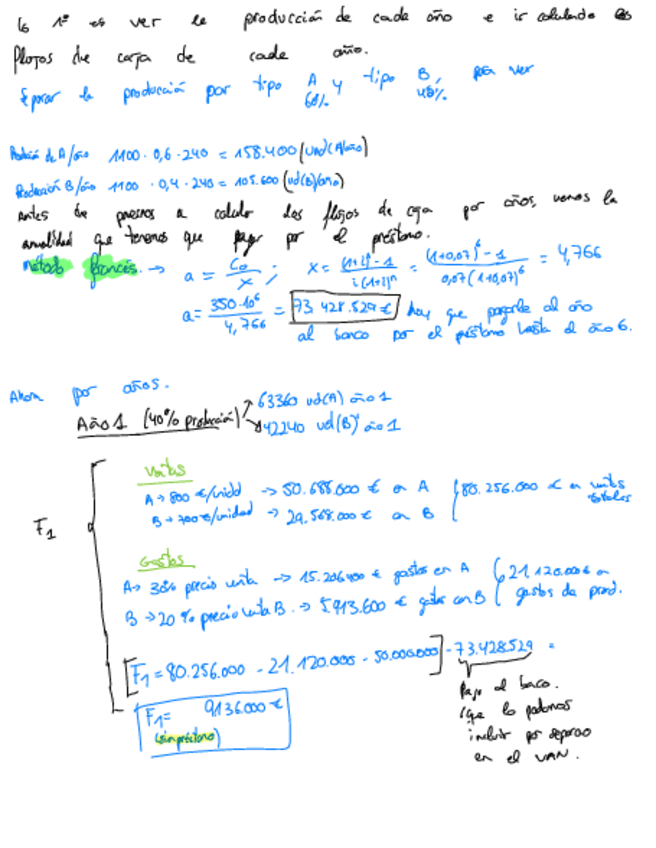 Lo 1º es ver la producción de cada año e ir calculando los
flojos de caja de cada año.
Separar la producción por tipo A y tipo B, para ver
60% 40%
Producción de A/año 1100 · 0,6 · 240 = 158.400 (und(A)/año)
Producción B/año 1100 · 0,4 · 240 = 105.600 (ud(B)/año)
Antes de ponernos a calcular los flojos de caja por años, vemos la
anualidad que tenemos que pagar por el préstamo.
Método francés. → a = C₀/x ; x = ((1+i)ⁿ - 1)/(i(1+i)ⁿ) = ((1+0,07)⁶ - 1)/(0,07(1+0,07)⁶) = 4,766
a = 350·10⁶/4,766 = 73.428.529 € hay que pagarle al año
al banco por el préstamo hasta el año 6.
Ahora por años.
Año 1 (40% producción) → 63360 ud(A) año 1
→ 42240 ud(B) año 1
Ventas
A → 800 €/unidad → 50.688.000 € en A
B → 700 €/unidad → 29.568.000 € en B
80.256.000 € en ventas
totales
F₁
Gastos
A → 30% precio venta → 15.206.400 € gastos en A
B → 20% precio venta B. → 5.913.600 € gastos en B
21.120.000 € en
gastos de prod.
[F₁ = 80.256.000 - 21.120.000 - 50.000.000] - 73.428.529 =
F₁ = 9136.000 €
(sin préstamo)
Pago al banco.
(que lo podemos
incluir por separado
en el VAN.